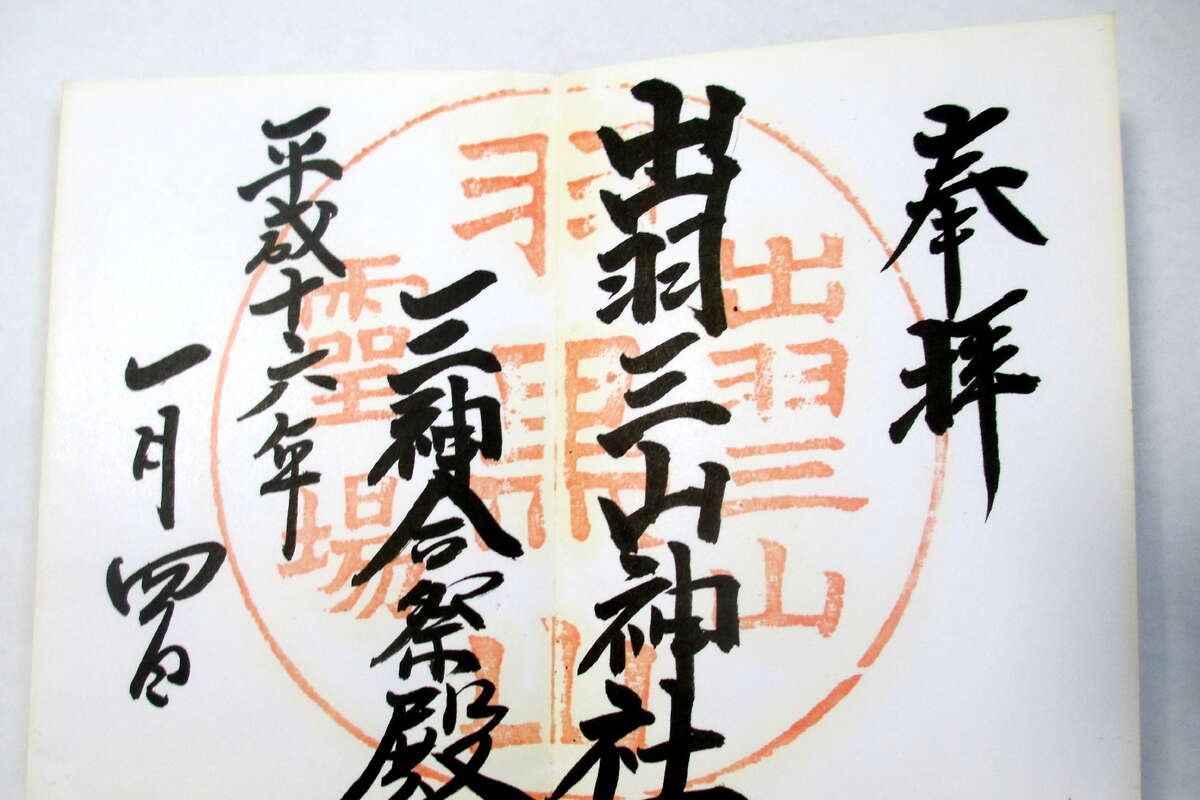 奉拝
出羽三山神社
三神合祭殿
平成十六年
一月四日
出羽三山
羽黒山
霊場